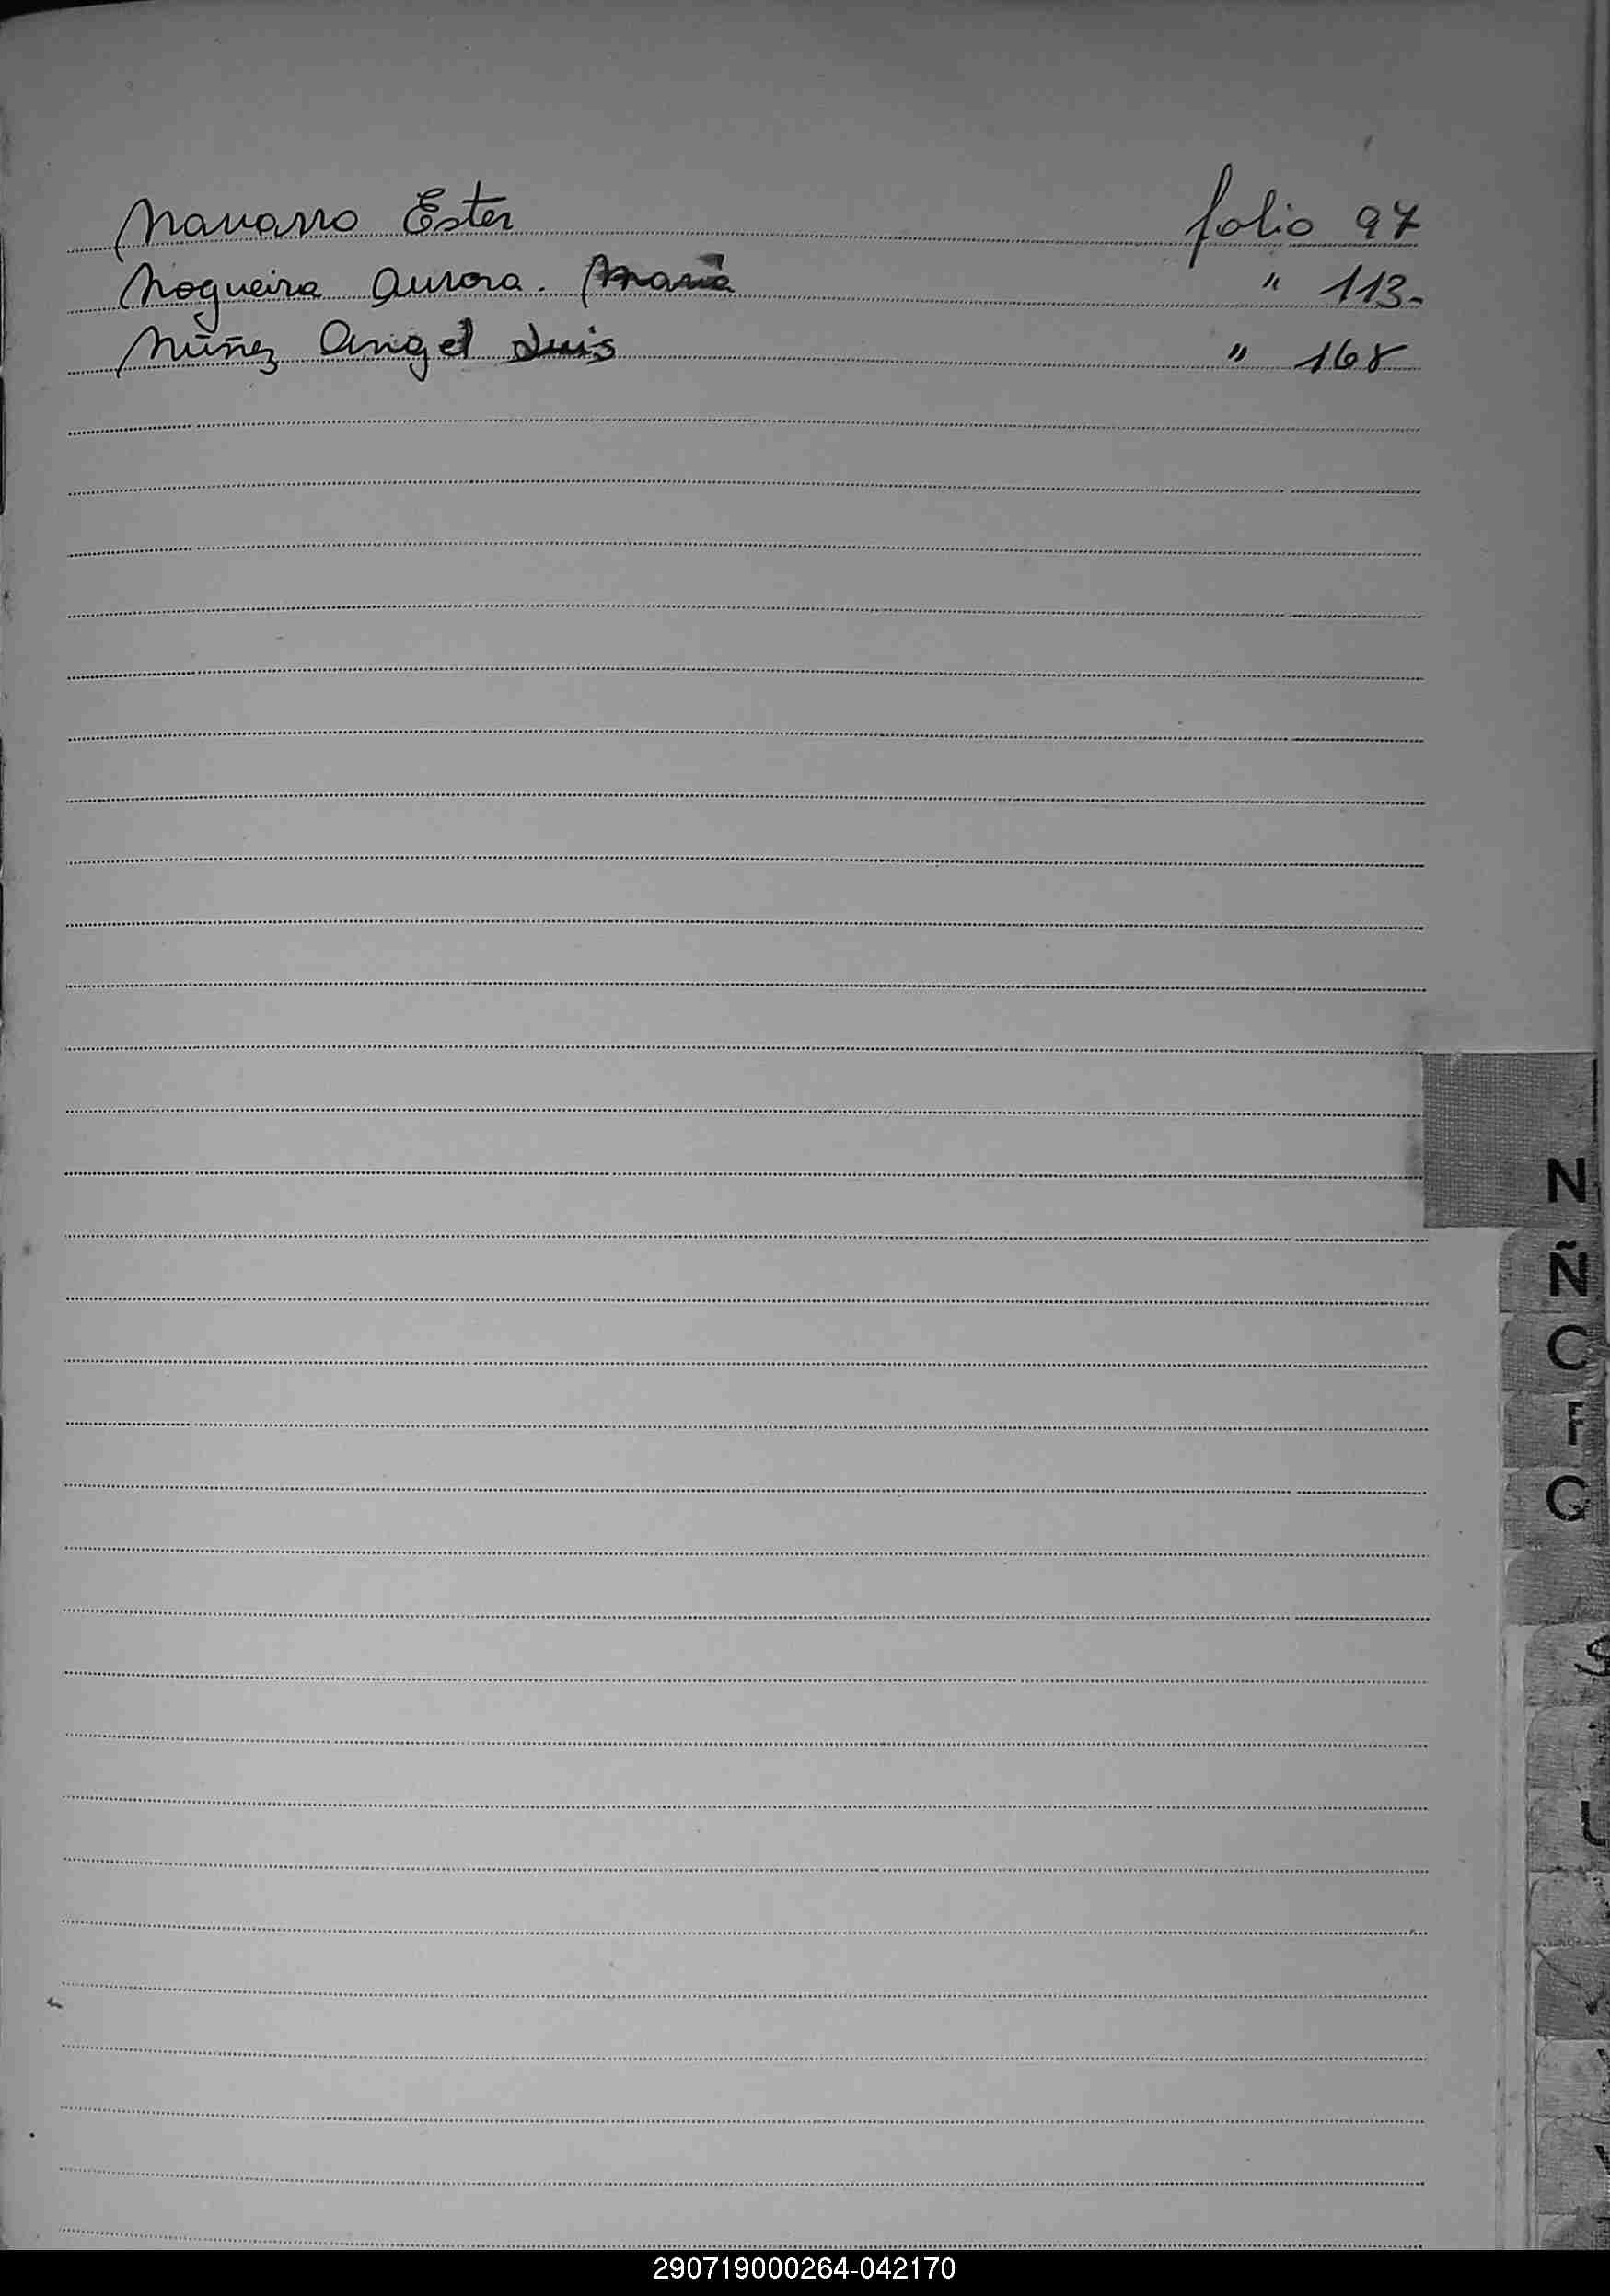 Navarro Ester folio 97
Nogueira Aurora. María " 113-
Núñez Angel Luis " 168
N
Ñ
Q
290719000264-042170